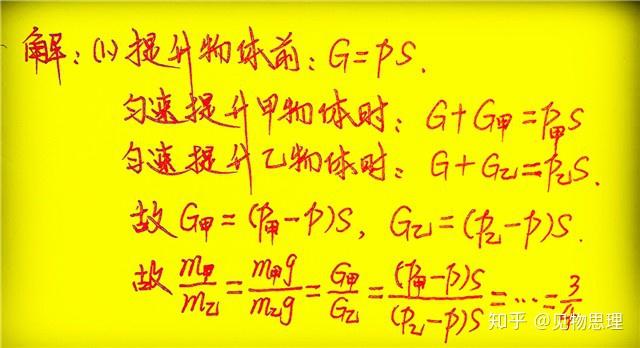 解：(1)提升物体前：G=pS.
匀速提升甲物体时：G+G甲=p甲S
匀速提升乙物体时：G+G乙=p乙S.
故G甲=(p甲-p)S, G乙=(p乙-p)S.
故 m甲/m乙 = m甲g/m乙g = G甲/G乙 = (p甲-p)S/(p乙-p)S = … = 3/
知乎 @见物思理